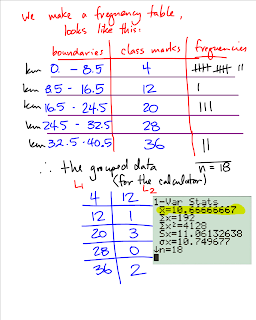 We make a frequency table,
looks like this:
boundaries class marks frequencies
km 0 - 8.5 4 𝍸 𝍸 ||
km 8.5 - 16.5 12 |
km 16.5 - 24.5 20 |||
km 24.5 - 32.5 28
km 32.5 - 40.5 36 ||
n = 18
∴ the grouped data
(for the calculator)
L1 L2
4 12
12 1
20 3
28 0
36 2
1-Var Stats
x̄=10.66666667
Σx=192
Σx²=4128
Sx=11.06132638
σx=10.749677
↓n=18